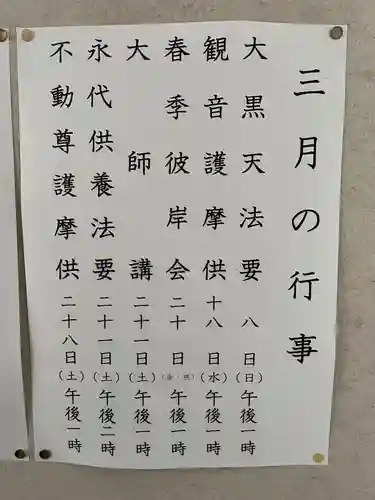 三月の行事
大黒天法要 八日(日)午後一時
観音護摩供 十八日(水)午後一時
春季彼岸会 二十日(金・祝)午後一時
大師講 二十一日(土)午後一時
永代供養法要 二十一日(土)午後二時
不動尊護摩供 二十八日(土)午後一時